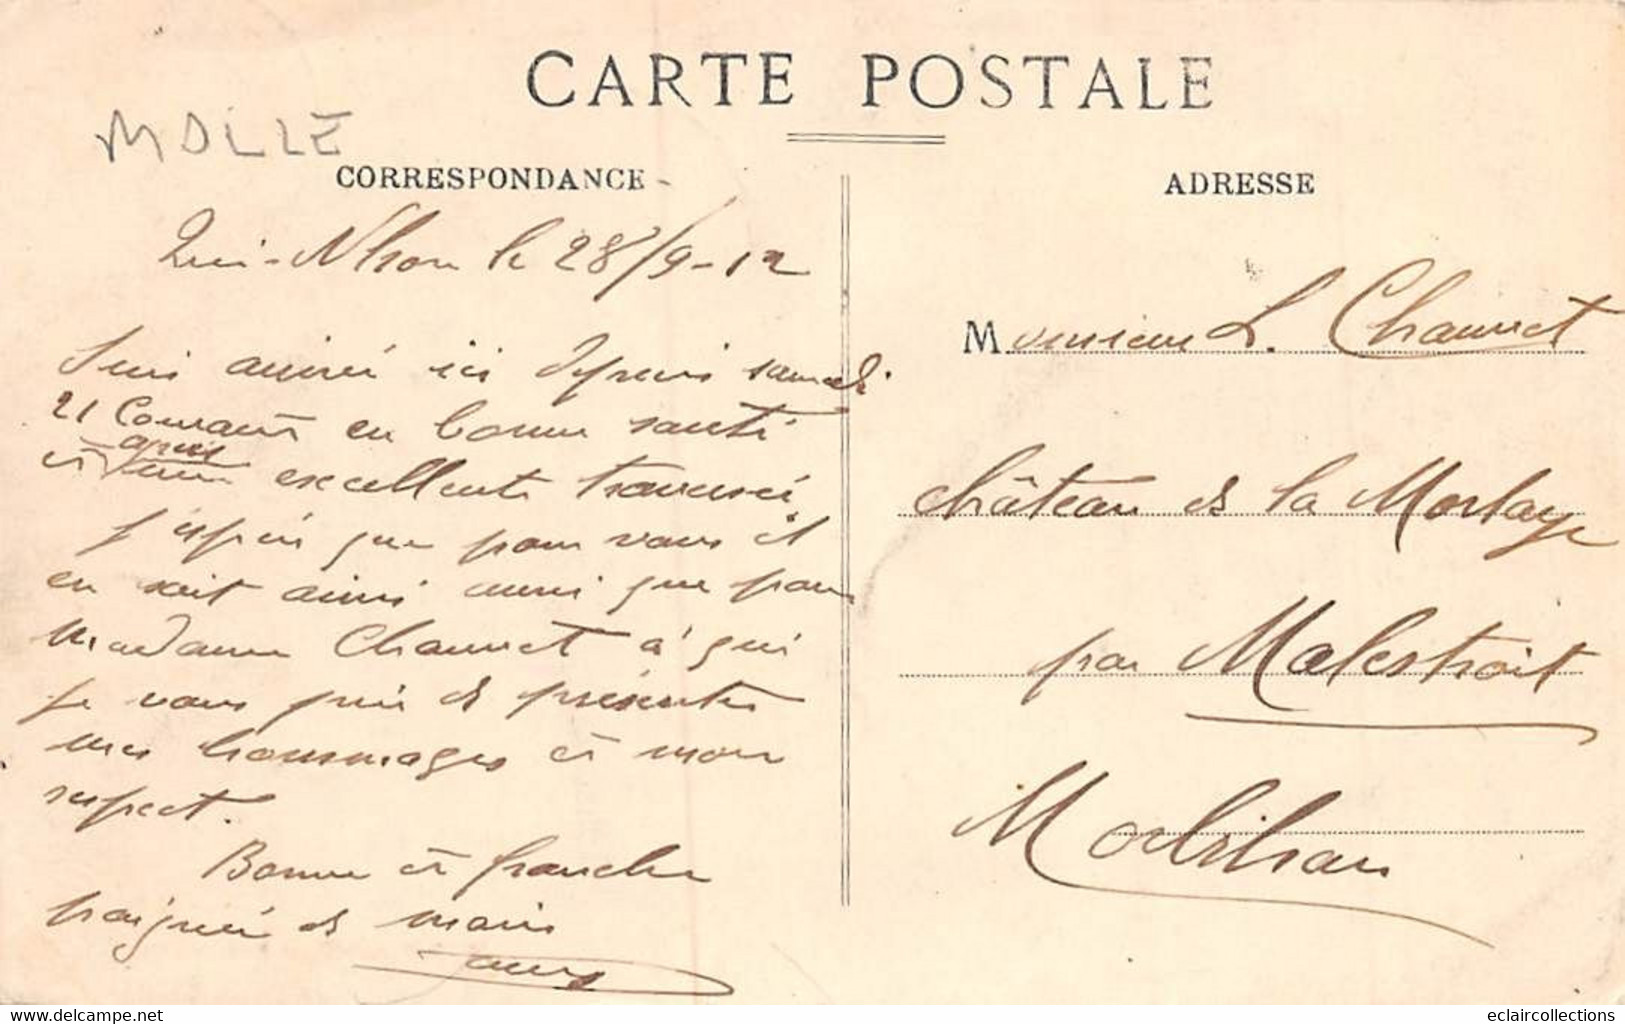 CARTE POSTALE
MOLLE
CORRESPONDANCE
Qui-Nhon le 28/9-12
Suis arrivé ici depuis samedi
21 Courant en bonne santé
et après une excellente traversée
j'espère que pour vous il
en soit ainsi aussi que pour
Madame Chauvet à qui
je vous prie de présenter
mes hommages et mon
respect.
Bonne et franche
poignée de main
ADRESSE
Monsieur L. Chauvet
Château de la Morlaye
par Malestroit
Morbihan
www.delcampe.net
eclaircollections